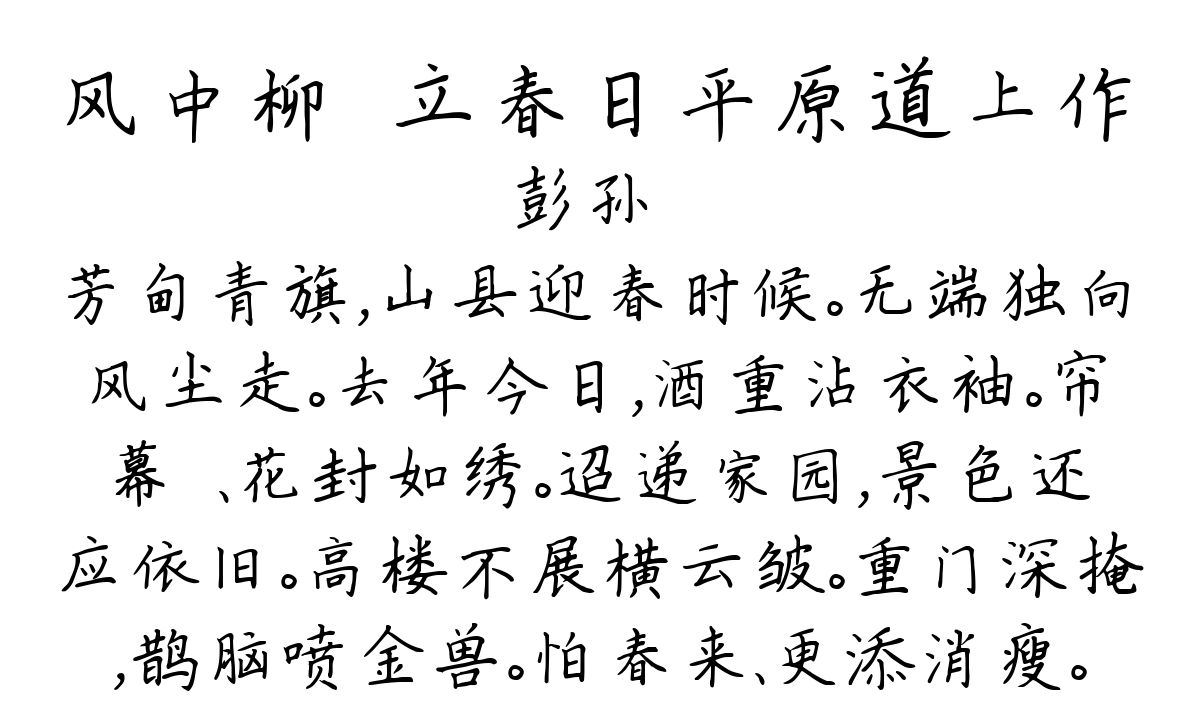 风中柳 立春日平原道上作
彭孙
芳甸青旗,山县迎春时候。无端独向
风尘走。去年今日,酒重沾衣袖。帘
幕 、花封如绣。迢递家园,景色还
应依旧。高楼不展横云皱。重门深掩
,鹊脑喷金兽。怕春来、更添消瘦。